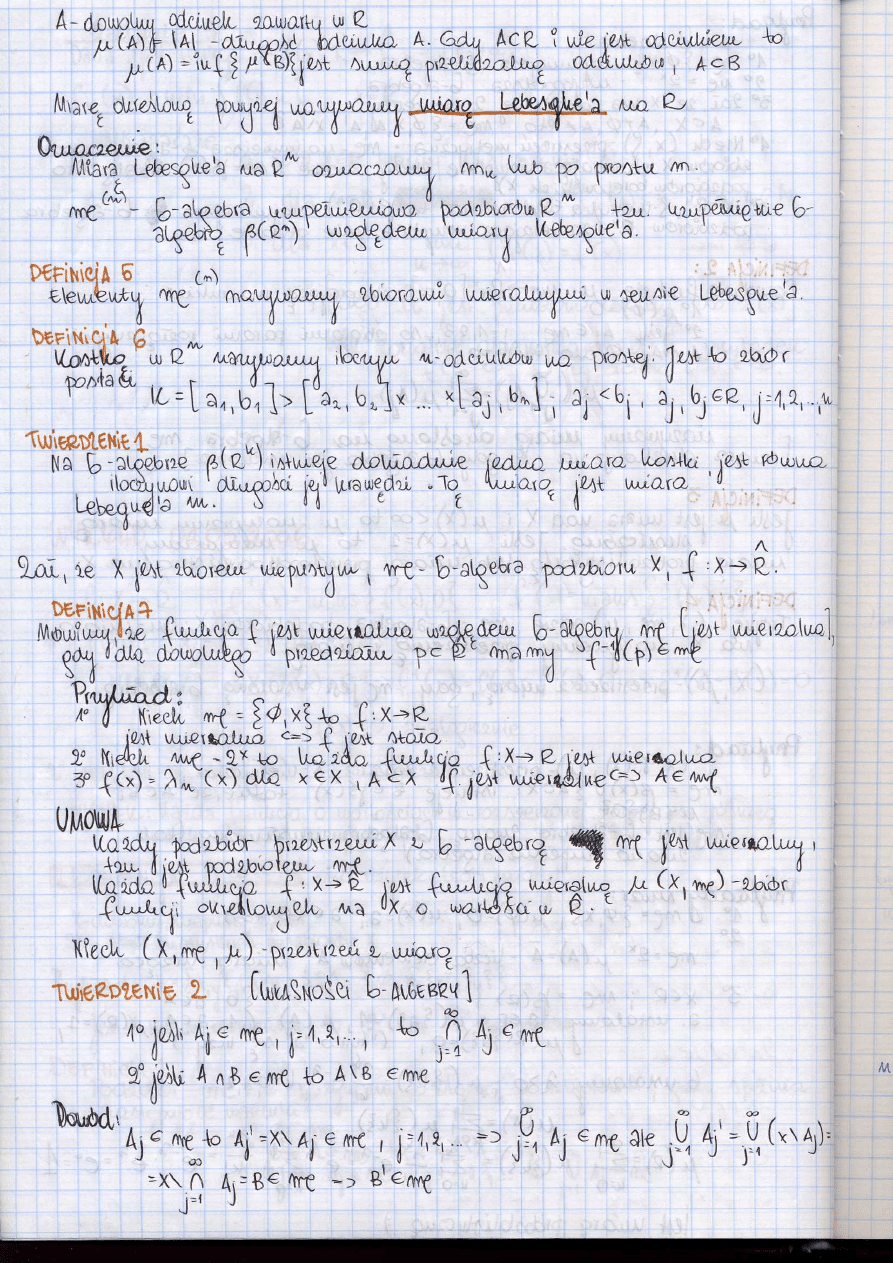 A- dowolny odcinek zawarty w R
μ(A) = |A| - długość odcinka A. Gdy A⊂R i nie jest odcinkiem to
μ(A) = inf { μ(B)} jest sumą przeliczalną odcinków, A⊂B
Miarę określoną powyżej nazywamy miarą Lebesgue'a na R
Oznaczenie:
Miarą Lebesgue'a na Rⁿ oznaczamy mₙ lub po prostu m.
mę⁽ⁿ⁾ - б-algebra uzupełnieniowa podzbiorów Rⁿ tzn. uzupełnienie б-
algebrą β(Rⁿ) względem miary Lebesgue'a.
DEFINICJA 5
Elementy mę⁽ⁿ⁾ nazywamy zbiorami mierzalnymi w sensie Lebesgue'a.
DEFINICJA 6
Kostką w Rⁿ nazywamy iloczyn n-odcinków na prostej. Jest to zbiór
postaci
K = [a₁, b₁] > [a₂, b₂] × ... × [aⱼ, bₙ] ; aⱼ < bⱼ, aⱼ, bⱼ ∈ R, j=1,2,..,n
TWIERDZENIE 1
Na б-algebrze β(Rᵏ) istnieje dokładnie jedna miara kostki, jest równa
iloczynowi długości jej krawędzi. Tą miarą jest miara
Lebegue'a m.
Zał, że X jest zbiorem niepustym, mę- б-algebra podzbioru X, f : X → R̂.
DEFINICJA 7
Mówimy, że funkcja f jest mierzalna względem б-algebry mę [jest mierzalna],
gdy dla dowolnego przedziału p⊂R̂ mamy f⁻¹(p) ∈ mę
Przykład:
1° Niech mę = {Ø, X} to f : X → R
jest mierzalna <=> f jest stała
2° Niech mę - 2ˣ to każda funkcja f : X → R jest mierzalna
3° f(x) = λₙ (x) dla x ∈ X, A⊂X f jest mierzalne <=> A ∈ mę
UMOWA
Każdy podzbiór przestrzeni X z б-algebrą mę jest mierzalny,
tzn jest podzbiorem mę.
Każda funkcja f : X → R̂ jest funkcją mieralną μ (X, mę) - zbiór
funkcji określonych na X o wartości w R̂.
Niech (X, mę, μ) - przestrzeń z miarą
TWIERDZENIE 2 [WŁASNOŚCI б-ALGEBRY]
1° jeśli Aⱼ ∈ mę, j = 1, 2, ..., to ⋂_{j=1}^{∞} Aⱼ ∈ mę
2° jeśli A ∩ B ∈ mę to A\B ∈ mę
Dowód:
Aⱼ ∈ mę to Aⱼ' = X\ Aⱼ ∈ mę, j=1,2,... => ⋃_{j=1}^{∞} Aⱼ ∈ mę ale ⋃_{j=1}^{∞} Aⱼ' = ⋃_{j=1}^{∞} (x\Aⱼ) =
= X\ ⋂_{j=1}^{∞} Aⱼ = B ∈ mę -> B' ∈ mę